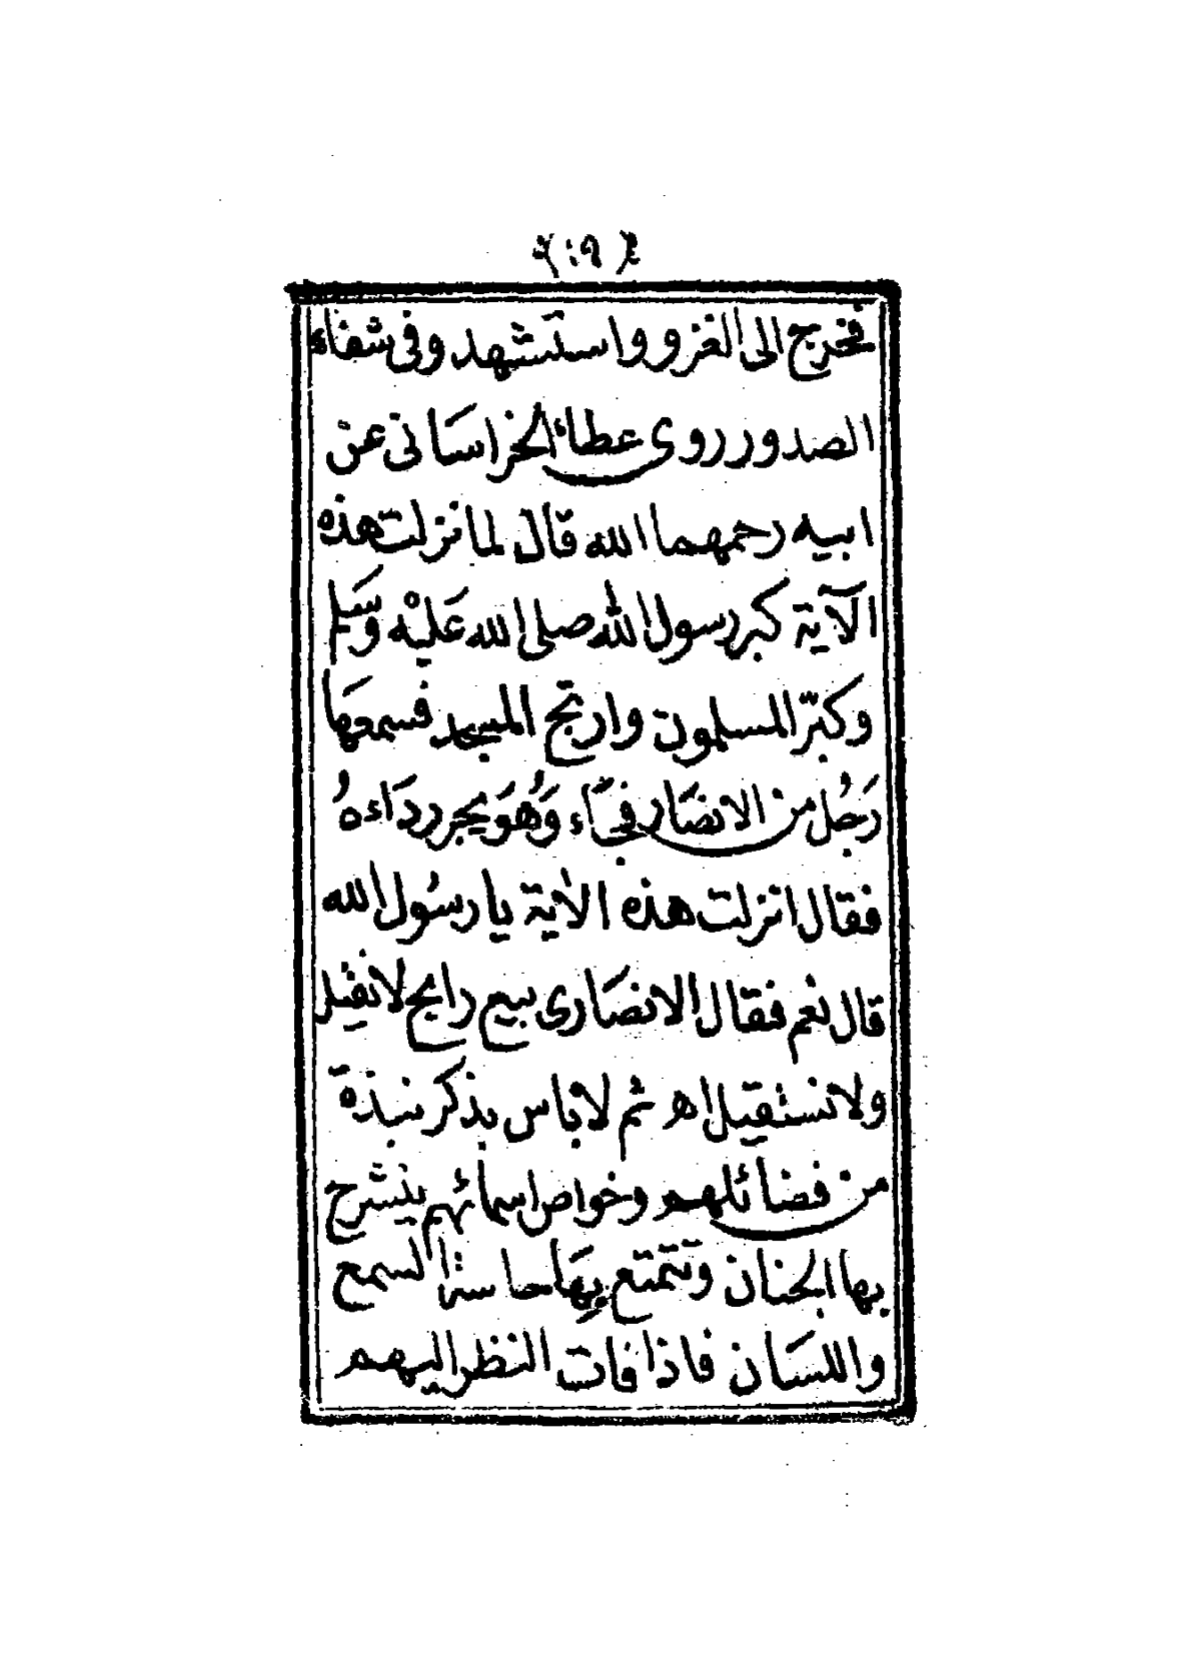 (٩)
فخرج الى الغزو واستشهد وفى شفاء
الصدور روى عطاء الخراسانى عن
ابيه رحمهما الله قال لما نزلت هذه
الآية كبر رسول الله صلى الله عَليْه وَسَلم
وكبّر المسلمون وارتج المسجد فسمعهَا
رَجُل من الانصَار فجَاء وَهُوَ يجر ردَاءهُ
فقال انزلت هذه الاية يا رسُول الله
قال نعم فقال الانصَارى بيع رابح لا نقيل
ولا نستقيل اھ ثم لا باس بذكر نبذة
من فضائلهم وخواص اسمائهم ينشرح
بها الجنان وتتمتع بِهَا حاستا السمع
واللسَان فاذا فات النظر اليهم